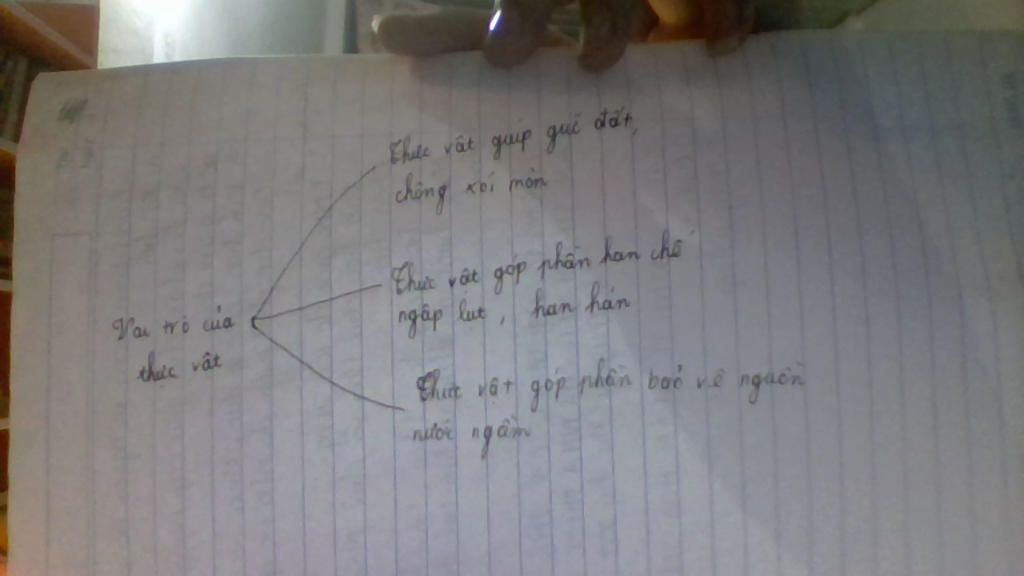 Thực vật giúp giữ đất,
chống xói mòn
Thực vật góp phần hạn chế
ngập lụt, hạn hán
Vai trò của
thực vật
Thực vật góp phần bảo vệ nguồn
nước ngầm